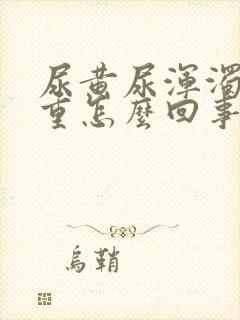 尿黄尿渾濁
重怎麽回事
烏鞘